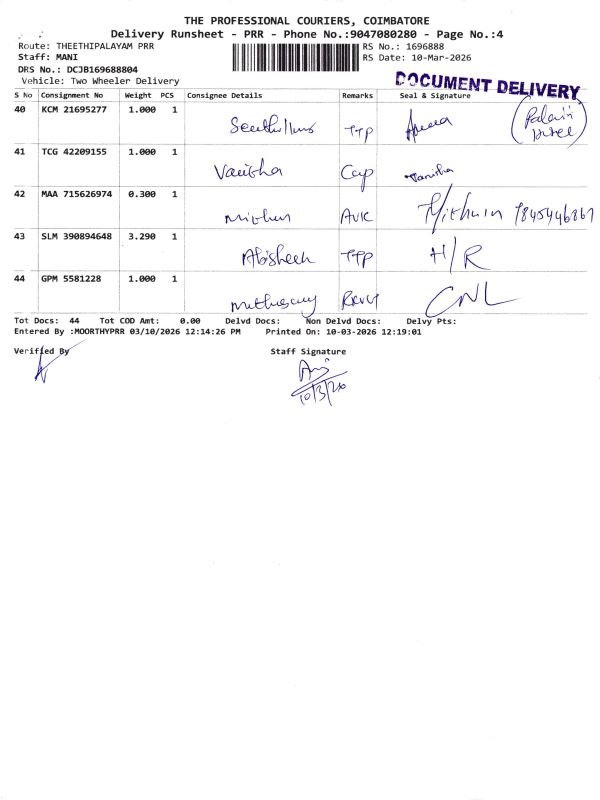 THE PROFESSIONAL COURIERS, COIMBATORE
Delivery Runsheet - PRR - Phone No.:9047080280 - Page No.:4
Route: THEETHIPALAYAM PRR RS No.: 1696888
Staff: MANI RS Date: 10-Mar-2026
DRS No.: DCJB169688804
Vehicle: Two Wheeler Delivery
DOCUMENT DELIVERY
S No Consignment No Weight PCS Consignee Details Remarks Seal & Signature
40 KCM 21695277 1.000 1 TTP
41 TCG 42209155 1.000 1 Vanisha Cap Vanisha
42 MAA 715626974 0.300 1 Mithun Mithun
43 SLM 390894648 3.290 1 Abisheek TTP H/R
44 GPM 5581228 1.000 1 CNL
Tot Docs: 44 Tot COD Amt: 0.00 Delvd Docs: Non Delvd Docs: Delvy Pts:
Entered By :MOORTHYPRR 03/10/2026 12:14:26 PM Printed On: 10-03-2026 12:19:01
Verified By Staff Signature
10/3/26